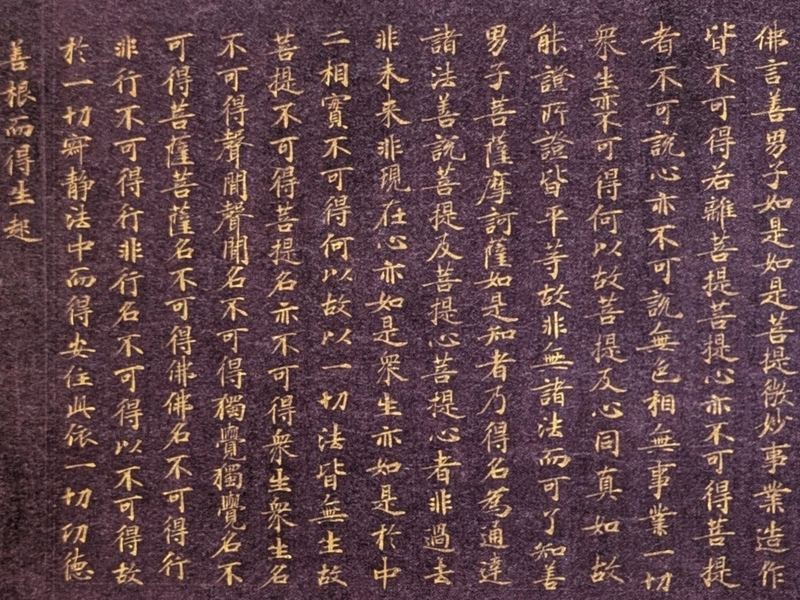 佛言善男子如是如是菩提微妙事業造作
皆不可得若離菩提菩提心亦不可得菩提
者不可說心亦不可說無色相無事業一切
衆生亦不可得何以故菩提及心同真如故
能證所證皆平等故非無諸法而可了知善
男子菩薩摩訶薩如是知者乃得名為通達
諸法善說菩提及菩提心菩提心者非過去
非未来非現在心亦如是衆生亦如是於中
二相實不可得何以故以一切法皆無生故
菩提不可得菩提名亦不可得衆生衆生名
不可得聲聞聲聞名不可得獨覺獨覺名不
可得菩薩菩薩名不可得佛佛名不可得行
非行不可得行非行名不可得以不可得故
於一切寂静法中而得安住此依一切功德
善根而得生起